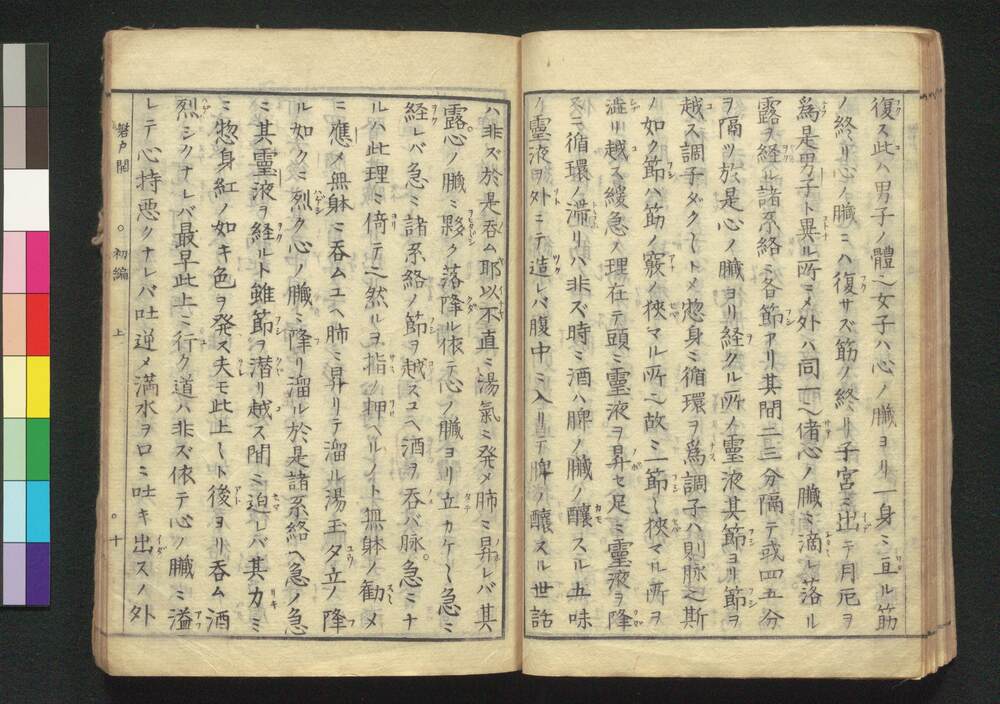 復ス此ハ男子ノ體也女子ハ心ノ臓ヨリ一身ミ亘ル筋
ノ終リ心ノ臓ミハ復サズ筋ノ終リ子宮ミ出テ月厄ヲ
爲是男子ト異ル所ミメ外ハ同一也偖心ノ臓ミ滴レ落ル
露ヲ経ル諸系絡ミ各節アリ其間二三分隔テ或四五分
ヲ隔ツ於是心ノ臓ヨリ経クル所ノ靈液其節ヨリ節ヲ
越ス調子ダク〱トメ惣身ミ循環ヲ爲調子ハ則脉之斯
ノ如ク節ハ筋ノ竅ノ狹マル所也故ミ一節〱狹マル所ヲ
澁リ越ス緩急ノ理在テ頭ミ靈液ヲ昇セ足ミ靈液ヲ降
ミ循環ノ滞リハ非ズ時ミ酒ハ脾ノ臓ノ釀スル五味
ノ靈液ヲ外ニテ造レバ腹中ミ入リテ脾ノ釀スル世話
ハ非ズ於是呑ム耶以不直ミ湯氣ミ発メ肺ミ昇レバ其
露心ノ臓ミ夥ク落降ル依テ心ノ臓ヨリ立カケ〱急ミ
経レバ急ミ諸系絡ノ節ヲ越スユヘ酒ヲ呑バ脉急ミナ
ルハ此理ミ倚テ之然ルヲ指ノ押ヘルノト無躰ノ勸メ
ミ應メ無躰ミ呑ムユヘ肺ミ昇リテ溜ル湯玉夕立ノ降
ル如クミ烈ク心ノ臓ミ降リ溜ル於是諸系絡ヘ急ノ急
ミ其靈液ヲ経ルト雖節ヲ潜リ越ス間ミ迫レバ其力ミ
ミ惣身紅ノ如キ色ヲ発ス夫モ此上〱ト後ヨリ呑ム酒
烈シクナレバ最早此上ミ行ク道ハ非ズ依テ心ノ臓ミ溢
レテ心持悪クナレバ吐逆メ満水ヲ口ミ吐キ出スノ外
磐戸開 ○初編 上 ○十